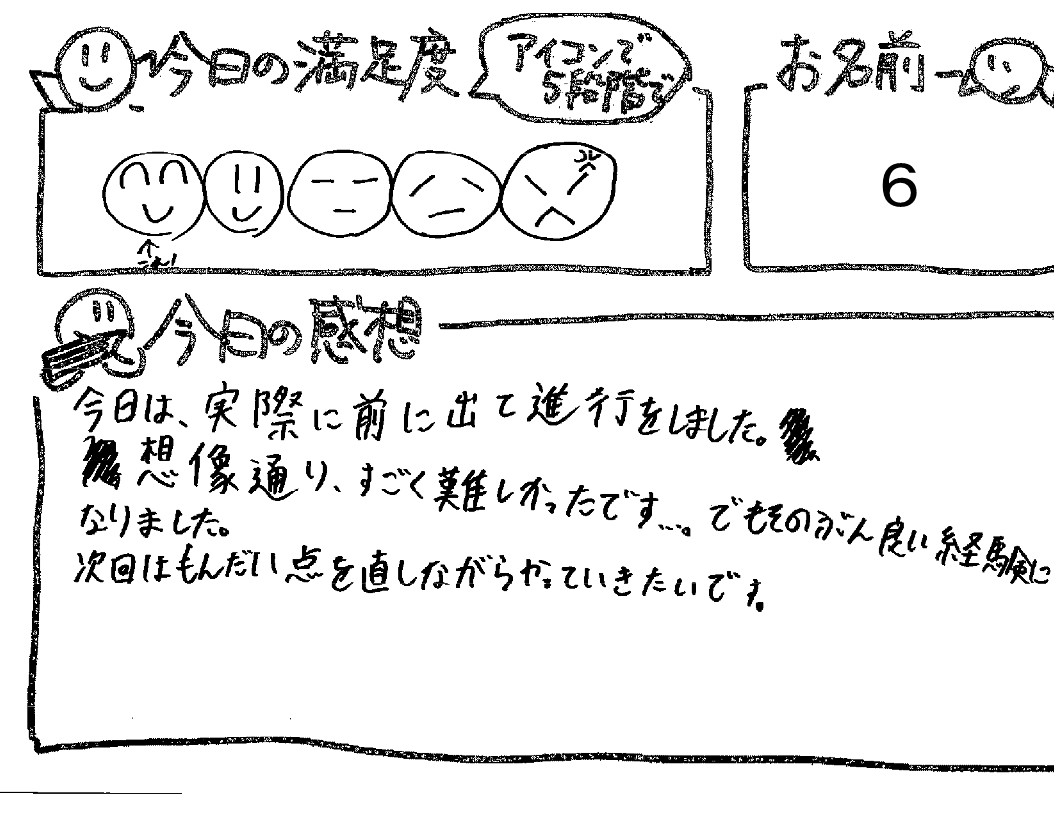 今日の満足度
アイコンで
5段階で
お名前
6
これ!
今日の感想
今日は、実際に前に出て進行をしました。
想像通り、すごく難しかったです…。でもそのぶん良い経験に
なりました。
次回はもんだい点を直しながらやっていきたいです。